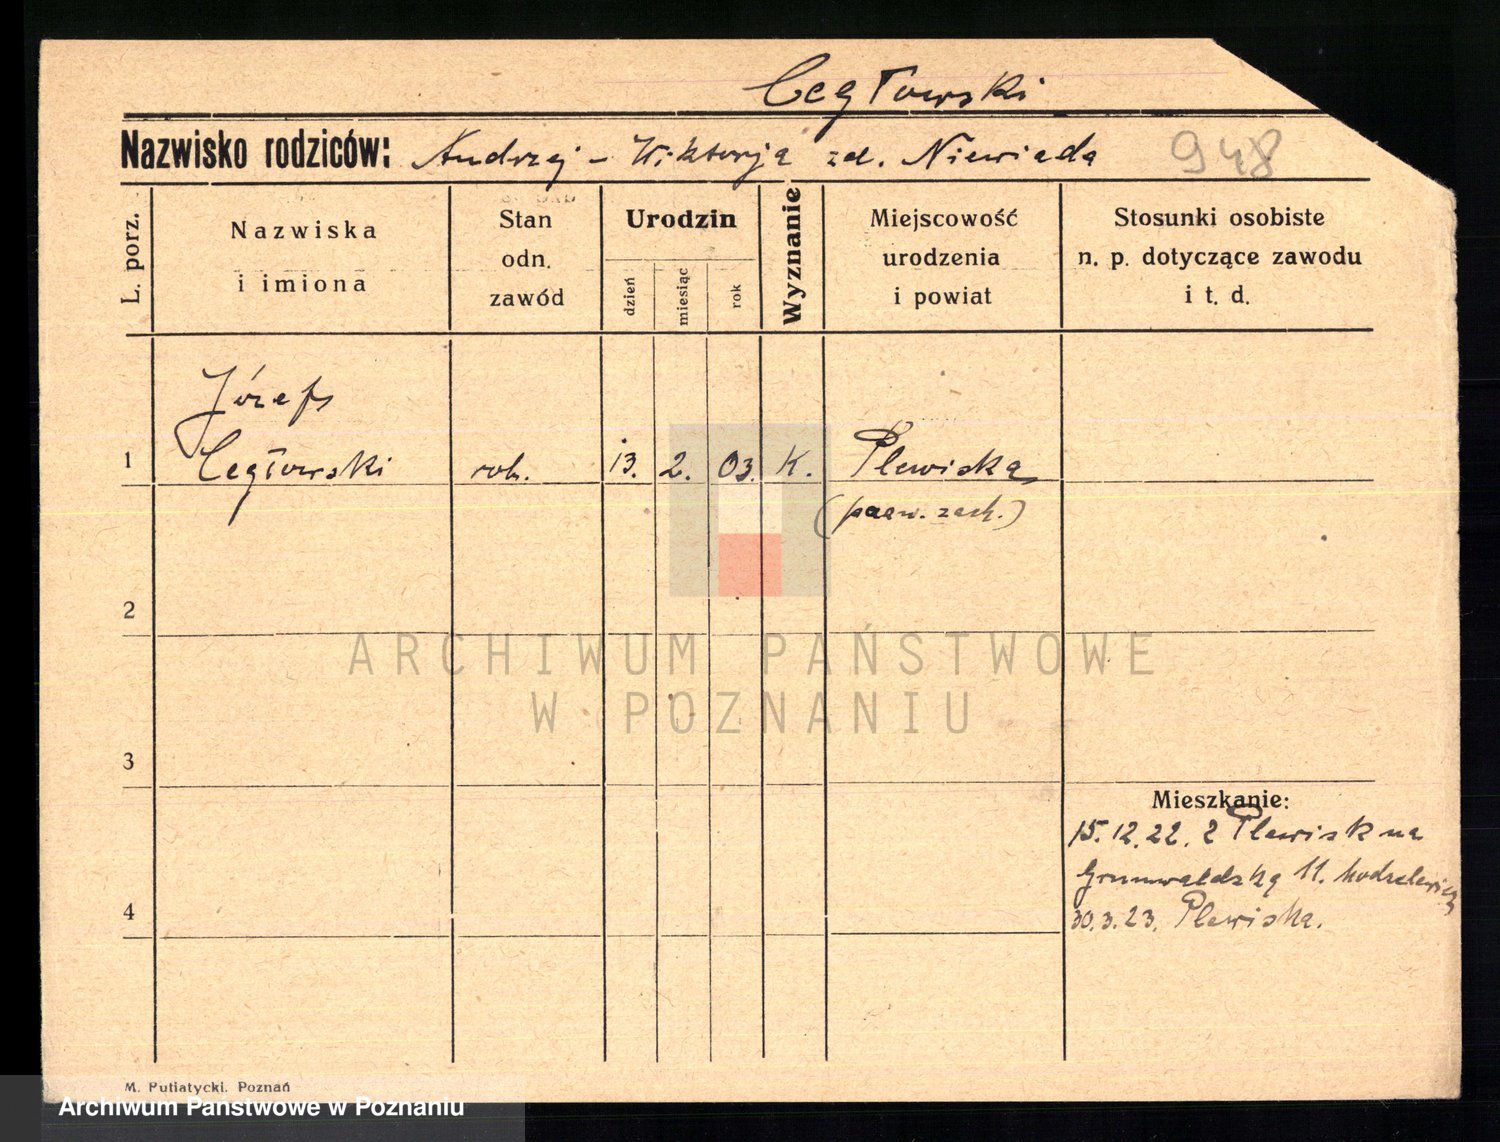 Cegłowski
Nazwisko rodziców: Andrzej - Wiktorja zd. Niewiada
948
L. porz.
Nazwiska
i imiona
Stan
odn.
zawód
Urodzin
dzień
miesiąc
rok
Wyznanie
Miejscowość
urodzenia
i powiat
Stosunki osobiste
n. p. dotyczące zawodu
i t. d.
Józef
1 Cegłowski rob. 13. 2. 03. K. Plewiska
(pozn. zach.)
2
ARCHIWUM PAŃSTWOWE
W POZNANIU
3
Mieszkanie:
15.12.22. z Plewisk na
Grunwaldzką 11.
4
30.3.23. Plewiska.
M. Putiatycki, Poznań
Archiwum Państwowe w Poznaniu